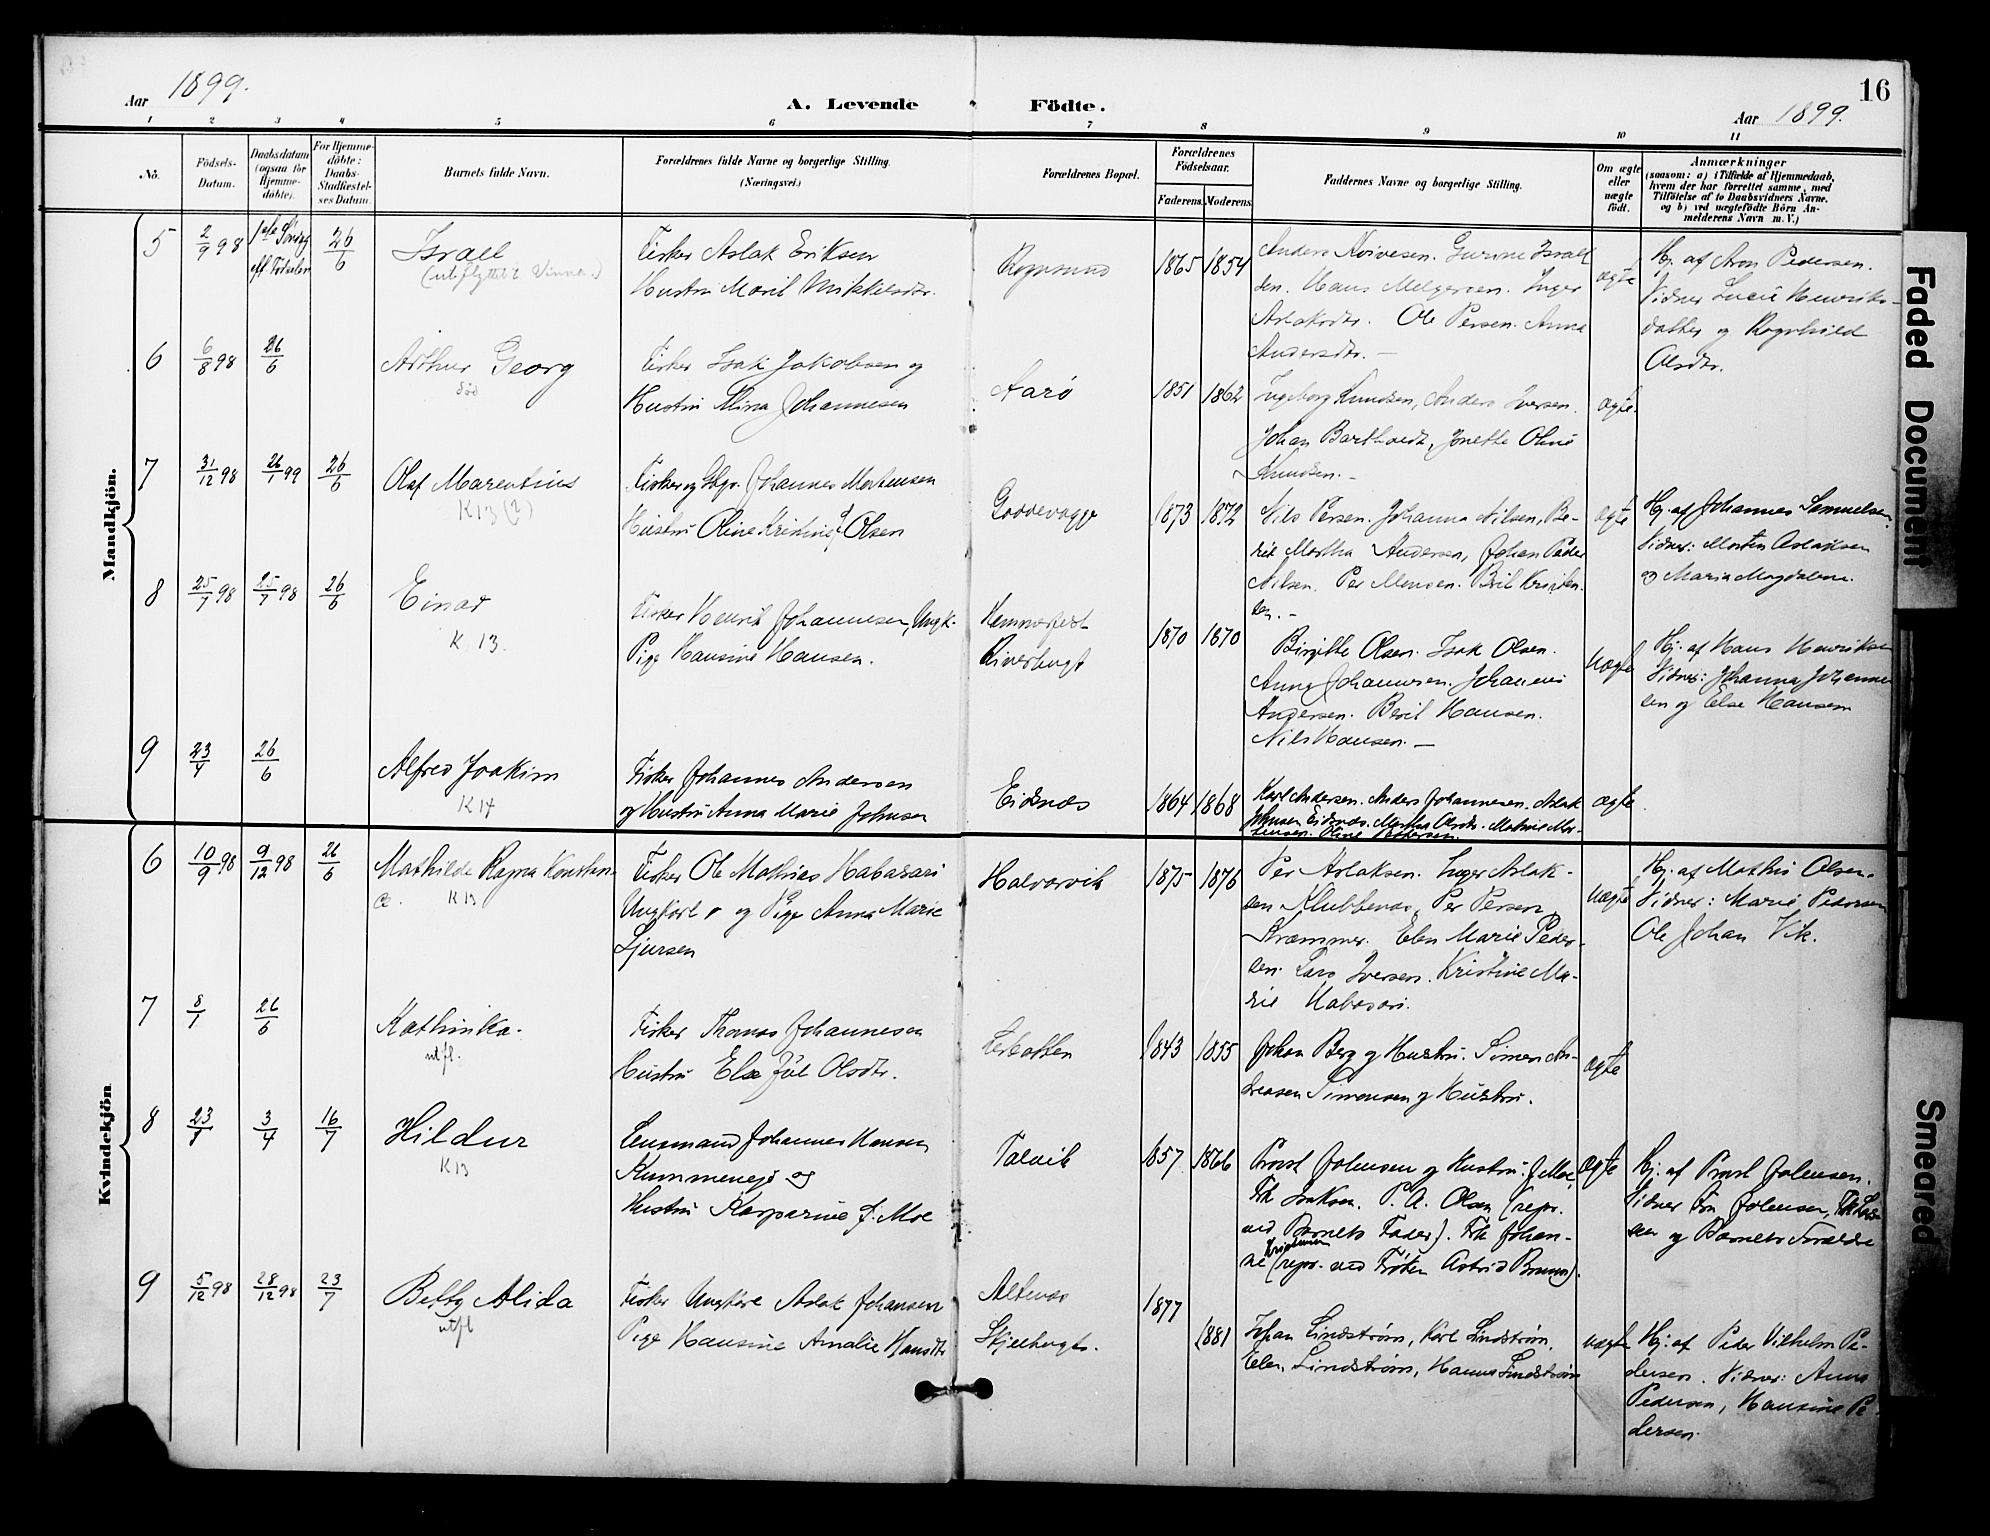 16
Aar 1899.
A. Levende Födte.
Aar 1899.
1 2 3 4 5 6 7 8 9 10 11
No.
Födsels-
Datum.
Daabsdatum
(ogsaa for
Hjemme-
döbte).
For Hjemme-
döbte:
Daabs-
Stadfæstel-
ses Datum.
Barnets fulde Navn.
Forældrenes fulde Navne og borgerlige Stilling.
(Næringsvei.)
Forældrenes Bopæl.
Forældrenes
Födselsaar.
Faderens. Moderens.
Faddernes Navne og borgerlige Stilling.
Om ægte
eller
uægte
födt.
Anmærkninger
(saasom: a) i Tilfælde af Hjemmedaab,
hvem der har forrettet samme, med
Tilföielse af to Daabsvidners Navne,
og b) ved uægtefödte Börn An-
melderens Navn m. V.)
Mandkjön.
5 2/9 98 26/6
eft. Fødselen
Israel
Fisker Aslak Eriksen
Hustru Marit Mikkelsdtr.
Rognsund
1865 1854
Israel
sen. Hans Melgersen. Inger
Aslaksdtr. Ole Persen. Anna
Andersdtr. —
ægte
Hj. af Aron Pedersen.
Vidner Lucie Henriks-
datter og Ragnhild
Olsdtr.
6 6/8 98 26/6
Arthur Georg
død
Fisker Isak Jakobsen og
Hustru Alina Johannesen
Aarø
1851 1862
Ingeborg Knudsen, Anders Iversen.
Johan Bartholdt, Jonette Oline
Knudsen. —
ægte.
7 31/12 98 26/1 99 26/6
Olaf Marentius
K 13 (?)
Fisker og Gbr. Johannes Mortensen
Hustru Oline Kristine Olsen
1873 1872
Nils Persen. Johanna Nilsen, Be-
rit Martha Andersen, Johan Peder
Nilsen. Per Monsen. Beril Kristen-
sen. —
ægte
Hj. af Johannes Samuelsen.
Vidner: Morten Aslaksen
og Maria Magdalene.
8 25/7 98 25/7 98 26/6
Einar
K 13.
Fisker Henrik Johannesen, Ungk.
Pige Hansine Hansen.
Hammerfest
1870 1870
Birgitte Olsen. Isak Olsen.
Anne Johannesen. Johannes
Andersen. Beril Hansen.
Nils Hansen. —
uægte
Hj. af Hans Henriksen
Vidner: Johanna Johanne-
sen og Else Hansen
9 23/4 26/6
Alfred Joakim
K 14
Fisker Johannes Andersen
og Hustru Anna Marie Johnsen
Eidsnæs
1864 1868
Karl Andersen. Anders Johannesen. Aslak
Johnsen Eidsnæs. Martha Olsdtr.
ægte.
Kvindekjön
6 10/9 98 9/12 98 26/6
Mathilde Ragna Konstan-
ce. K 13
Fisker Ole Mathias Habasari
Ungkarl og Pige Anna Marie
Sjursen
Halvorvik
1875 1876
Per Aslaksen. Inger Aslak-
sen Klubbenæs. Per Persen
Strømmer. Elen Marie Peder-
sen. Lars Iversen. Kristine Ma-
rie Habasari.
uægte
Hj. af Mathis Olsen.
Vidner: Marie Pedersen
Ole Johan Vik.
7 8/1 26/6
Kathinka.
utfl.
Fisker Thomas Johannesen
Hustru Olsdtr.
Lerbotten
1843 1855
Johan Berg og Hustru. Simen An-
dreasen Simonsen og Hustru.
ægte
8 3/4 16/7
Hildur
K 13
Lensmand Johannes Hansen
Kummeneje og
Hustru Kasparine J. Moe
Talvik
1857 1866
Provst Jolensen og Hustru. J. Moe,
Frk Isaksen. P. A. Olsen (repr.
ved Barnets Fader). Frk Johan-
ne (repr. ved Frøken Astrid Bruun).
ægte
Hj. af Provst Jolensen.
Vidner Fru Jolensen,
og Barnets Forældre
9 5/12 98 28/12 98 23/7
Betty Alida
utfl
Fisker Ungkarl Aslak Johansen
Pige Hansine Amalie Hansdtr
Altenæs
1877 1881
Johan Lindstrøm, Karl Lindstrøm,
Elen Lindstrøm, Hanna Lindstrøm
uægte
Hj. af Peder Vilhelm Pe-
dersen. Vidner: Anna
Pedersen, Hansine Pe-
dersen.
Faded Document
Smeared